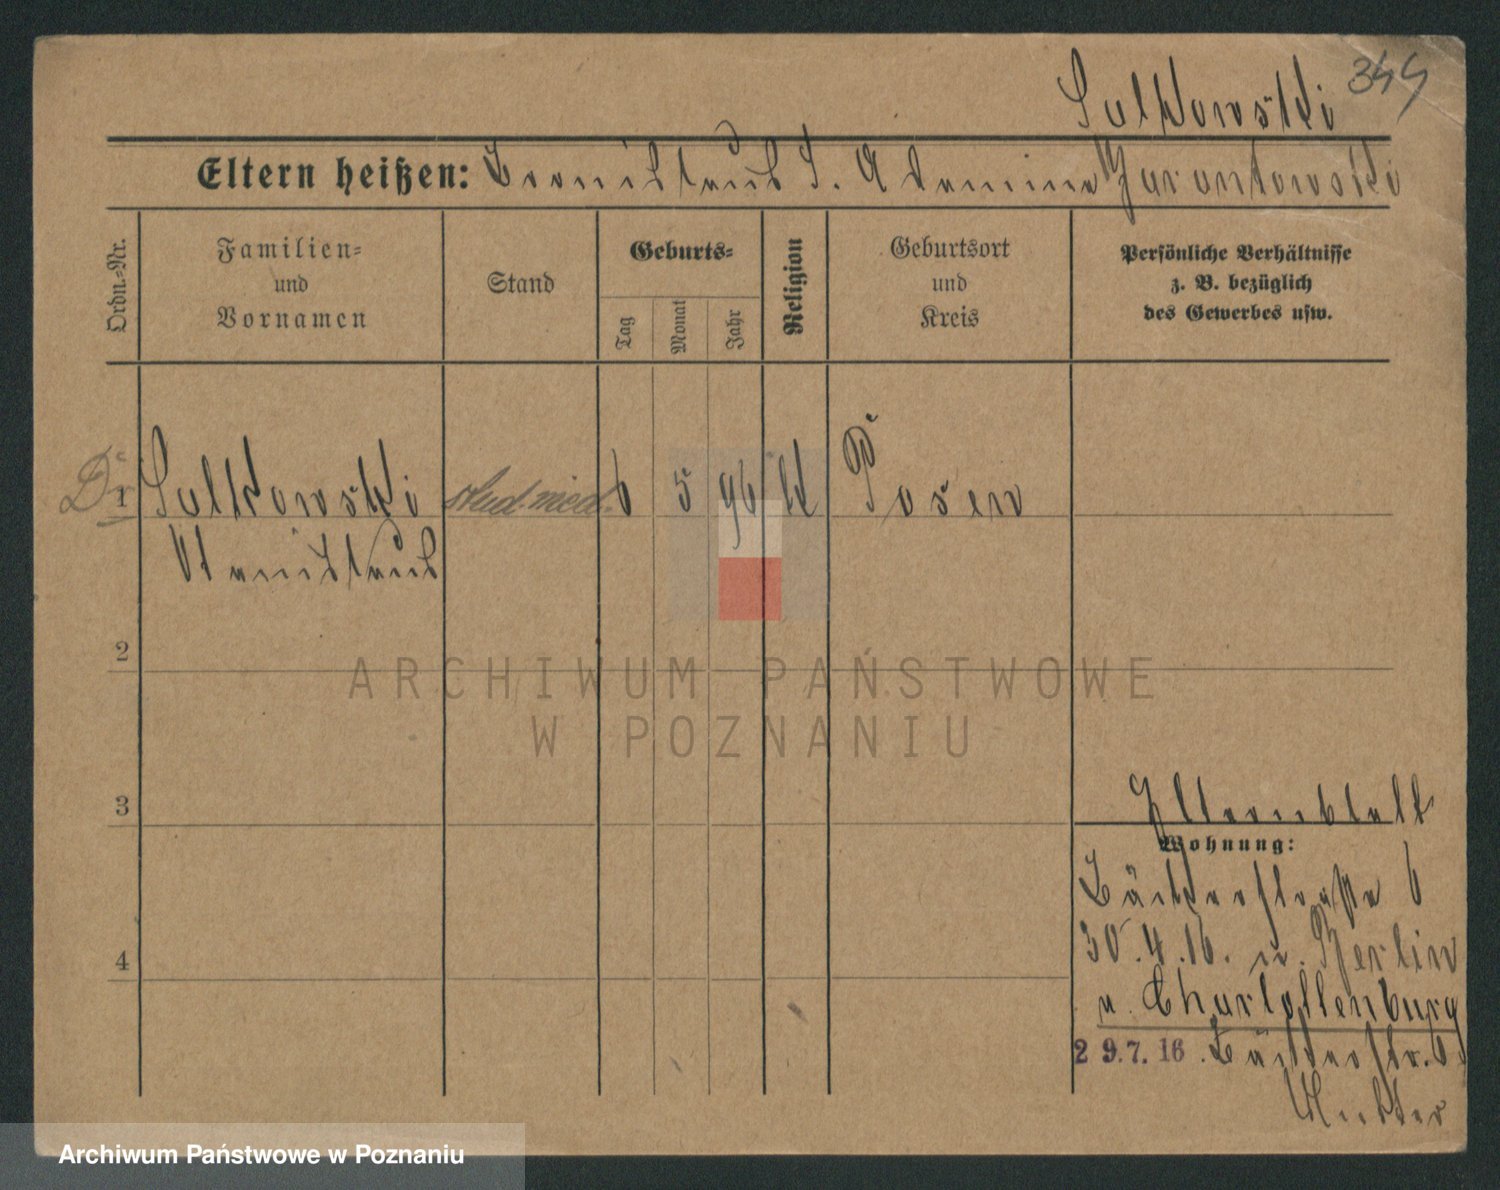 344
Sulkowski
Eltern heißen: Bronislaus S. Jarantowski
Ordn.-Nr.
Familien-
und
Vornamen
Stand
Geburts-
Tag
Monat
Jahr
Religion
Geburtsort
und
Kreis
Persönliche Verhältnisse
z. B. bezüglich
des Gewerbes usw.
Dr
1 Sulkowski stud. med. 6 5 96 k Posen
Stanislaus
2
3
4
Elternblatt
Wohnung:
Bäckerstraße 6
30.4.16. n. Berlin
n. Charlottenburg
29.7.16. Bäckerstr. 6
Mutter
ARCHIWUM PAŃSTWOWE
W POZNANIU
Archiwum Państwowe w Poznaniu